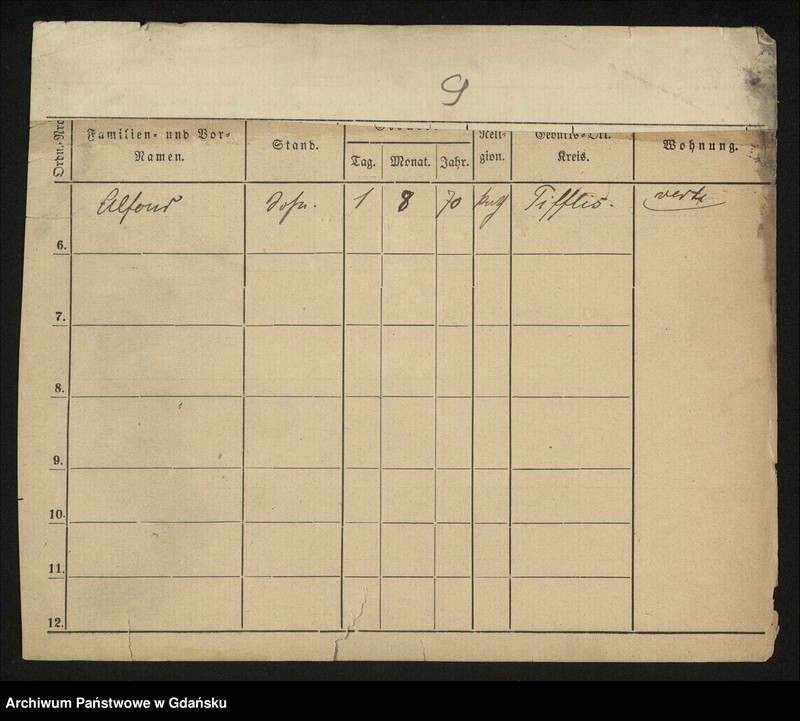 9
Ordn.-Nro
Familien- und Vor-
Namen.
Stand.
Tag.
Monat.
Jahr.
Reli-
gion.
Geburts-Ort.
Kreis.
Wohnung.
Alfons
Sohn.
1
8
70
Tifflis.
6.
7.
8.
9.
10.
11.
12.
Archiwum Państwowe w Gdańsku